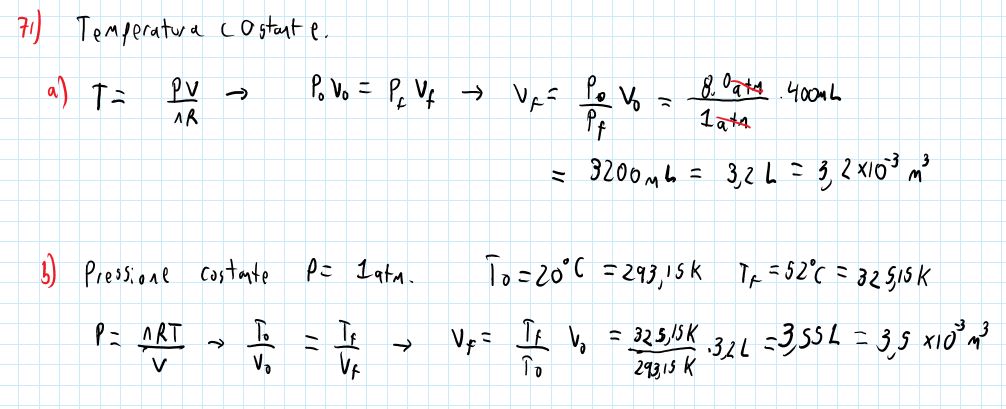 71) Temperatura costante.
a) T = PV/nR → P₀V₀ = P_f V_f → V_f = P₀/P_f V₀ = 8.0atm/1atm · 400mL
= 3200mL = 3,2 L = 3,2×10⁻³ m³
b) Pressione costante P = 1atm. T₀ = 20°C = 293,15K T_f = 52°C = 325,15K
P = nRT/V → T₀/V₀ = T_f/V_f → V_f = T_f/T₀ V₀ = 325,15K/293,15K · 3,2L = 3,55L = 3,5 ×10⁻³ m³